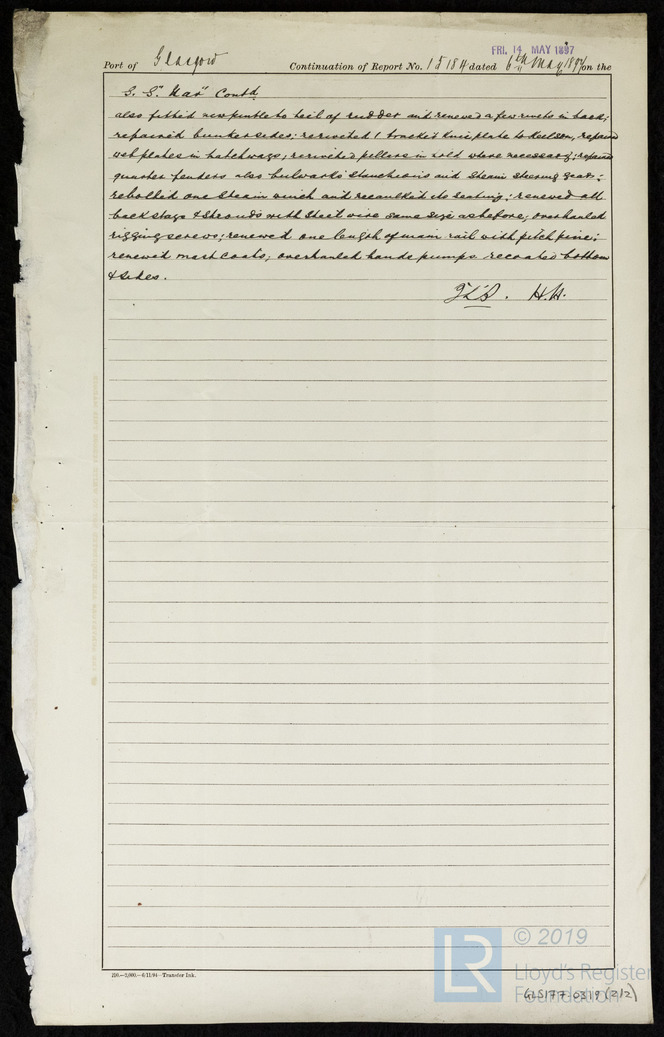 FRI. 14 MAY 1897
Port of Glasgow Continuation of Report No. 15184 dated 6th May 1897 on the
S.S. "Nar" Contd
also fitted new pintle to heel of rudder and renewed a few rivets in back;
repaired bunker sides; reriveted 1 bracket knee plate to Keelson, repaired
web plates in hatchways; reriveted pillars in hold where necessary; repaired
quarter fenders also bulwarks stancheons and steam steering gear;
rebolted one steam winch and recaulked its seating; renewed all
back stays & Shrouds with Steel wire same size as before; overhauled
rigging screws; renewed one length of main rail with pitch pine;
renewed mast coats; overhauled hand pumps recoated bottom
& sides.
H.M.
210.—2,000.—6/11/94—Transfer Ink.
LR © 2019
Lloyd's Register
Foundation
GLS177-0319 (2/2)